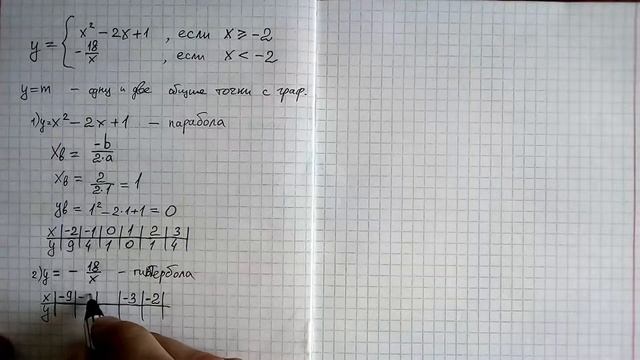 y = { x² - 2x + 1 , если x ≥ -2
-18/x , если x < -2
y = m - одну и две общие точки с граф.
1) y = x² - 2x + 1 - парабола
xв = -b/2·a
xв = 2/2·1 = 1
yв = 1² - 2·1 + 1 = 0
x | -2 | -1 | 0 | 1 | 2 | 3
y | 9 | 4 | 1 | 0 | 1 | 4
2) y = - 18/x - гипербола
x | -9 | | | -3 | -2 |
y | | | | |